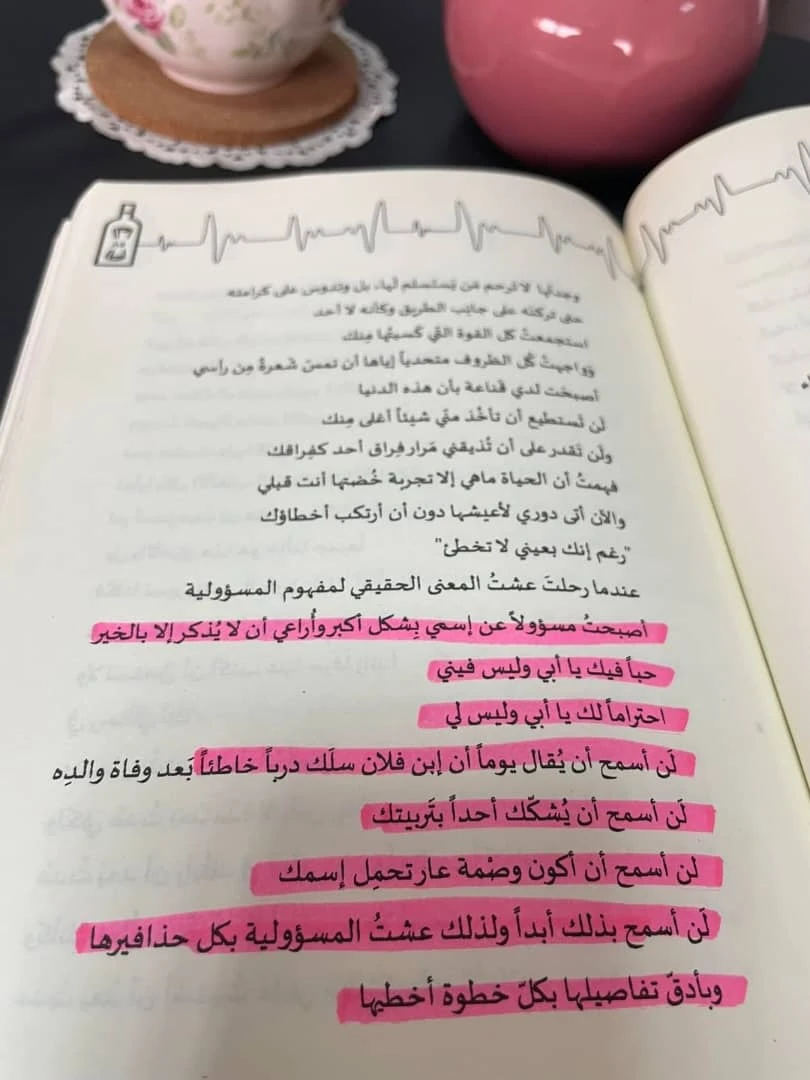 وجدتُها لا ترحم مَن يَستسلم لها، بل وتدوس على كرامته
حتى تركته على جانِب الطريق وكأنه لا أحد
استجمعتُ كل القوة التي كَسبتُها مِنك
وَواجهتُ كُل الظروف متحدياً إياها أن تمسّ شَعرةً مِن راسي
أصبحَت لدي قَناعة بأن هذه الدنيا
لَن تَستطيع أن تأخُذ منّي شيئاً أغلى مِنك
ولَن تَقدر على أن تُذيقني مَرار فِراق أحد كفِراقك
فهِمتُ أن الحياة ماهي إلا تجربة خُضتها أنت قبلي
والآن أتى دوري لأعيشها دون أن أرتكب أخطاؤك
"رغم إنك بعيني لا تخطئ"
عندما رحلتَ عشتُ المعنى الحقيقي لمفهوم المسؤولية
أصبحتُ مسؤولاً عن إسمي بِشكل أكبر وأُراعي أن لا يُذكر إلا بالخير
حباً فيك يا أبي وليس فيني
احتراماً لك يا أبي وليس لي
لَن أسمح أن يُقال يوماً أن إبن فلان سلَك درباً خاطئاً بَعد وفاة والدِه
لَن أسمح أن يُشكّك أحداً بتَربيتك
لن أسمح أن أكون وصْمة عار تحمِل إسمك
لَن أسمح بذلك أبداً ولذلك عشتُ المسؤولية بكل حذافيرها
وبأدقّ تفاصيلها بكلّ خطوة أخطيها